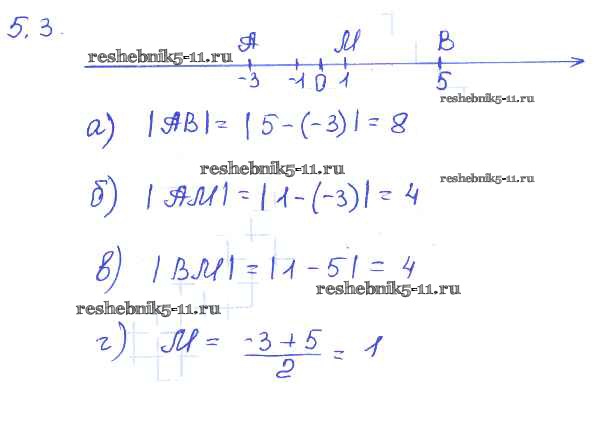 5.3.
A M B
reshebnik5-11.ru
-3 -1 0 1 5
reshebnik5-11.ru
а) |AB| = |5-(-3)| = 8
reshebnik5-11.ru
reshebnik5-11.ru
б) |AM| = |1-(-3)| = 4
в) |BM| = |1-5| = 4
reshebnik5-11.ru
reshebnik5-11.ru
г) M = \frac{-3+5}{2} = 1